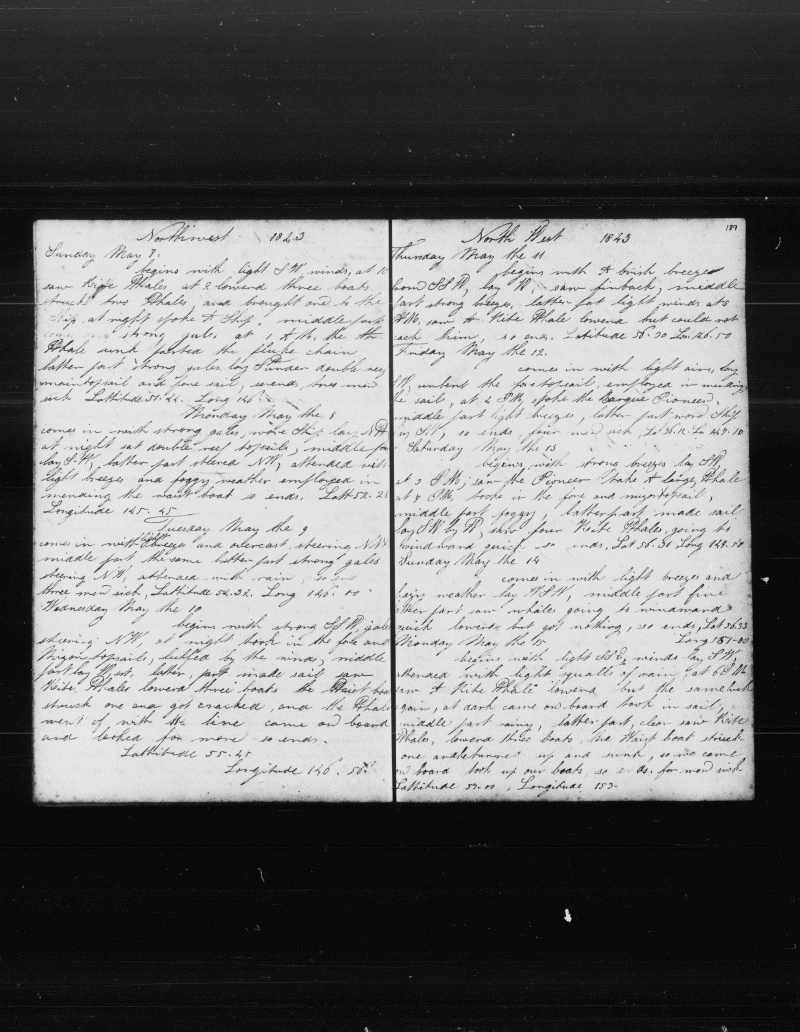 Northwest 1843
Sunday May 7.
begins with light S W winds, at 10
saw Rite Whales at 2 lowerd three boats
struck two Whales, and brought one to the
Ship at night spoke A Ship middle part
strong gales at A.M. the
Whale sunk parted the fluke chain
latter part strong gales lay S under double reef
maintopsail and fore sail, so ends, two men
sick Lattitude 51.22 Long 146
Monday May the 8
comes in with strong gales, wore Ship lay N W
at night sat double reef topsails, middle part
lay S. W, latter part steerd N W, attended with
light breezes and foggy weather employed in
mending the waist boat so ends. Latt 52.28
Longitude 145.45
Tuesday May the 9
comes in with light breezes and overcast, steering N W
middle part the same latter part strong gales
steering N W, attended with rain, so ends
three men sick, Lattitude 54.32. Long 146.00
Wednesday May the 10
begins with strong S S W gales
steering N W, at night took in the fore and
Mizontopsails, luffed by the wind, middle
part lay West, latter part made sail saw
Rite Whales lowerd three boats the Waist boat
struck one and got cracked, and the Whale
went of with the line came on board
and looked for more so ends.
Lattitude 55.25
Longitude 146.50
189
North West 1843
Thursday May the 11
begins with A brisk breeze
from S S W, lay W, saw finback, middle
part strong breezes, latter part light winds at 8
A M, saw A Rite Whale lowerd but could not
him, so ends. Lattitude 56.30 Lon 146.50
Friday May the 12.
comes in with light airs, lay
S W, unbent the foretopsail, employed in mending
the sail, at 2 P M, spoke the Barque Pioneer.
middle part light breezes, latter part wore Ship
so ends four men sick, Lon 147.10
Saturday May the 13
begins with strong breezes lay S W,
at 3 P M, saw the Pioneer take A large Whale
at 7 P M, took in the fore and mizontopsail,
middle part foggy, latter part made sail
lay S W by W, saw four Rite Whales, going to
windward quick so ends, Lat 56.30 Long 149.50
Sunday May the 14
comes in with light breezes and
weather lay W S W, middle part fine
latter part saw whales going to windward
quick lowerd but got nothing, so ends, Lat 56.33
Long 151.00
Monday May the 15
begins with light S S E, winds lay S W,
attended with light squalls of rain, at 6 P M
saw A Rite Whale lowerd but the same luck
again, at dark came on board took in sail,
middle part rainy, latter part, clear saw Rite
Whale, lowerd three boats, the Waist boat struck
one and up and sunk, so we came
on board took up our boats, so ends. four men sick
Lattitude 57.00, Longitude 153